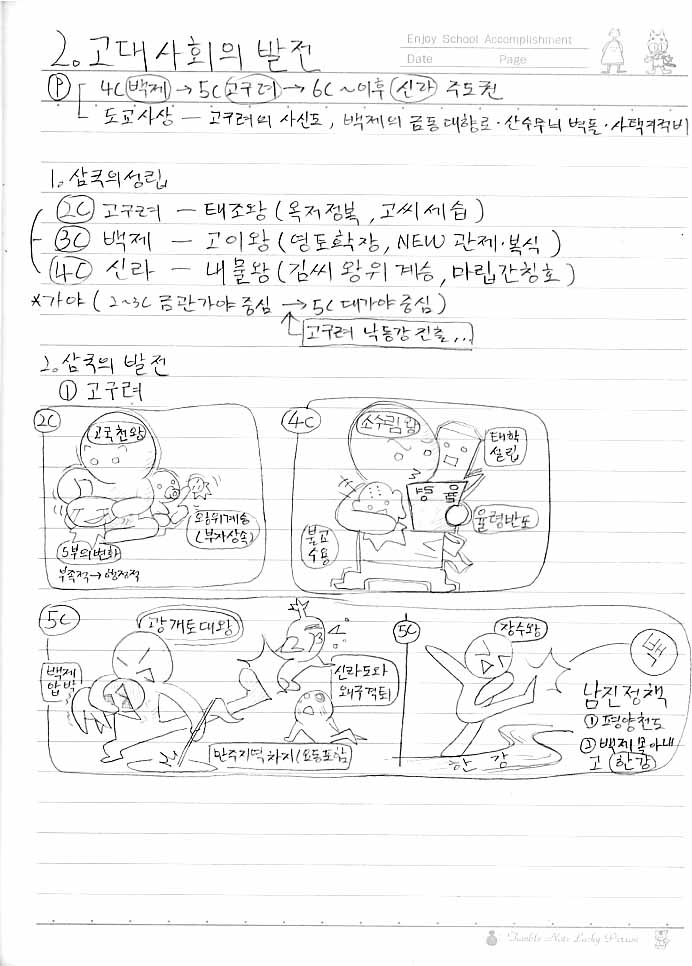 Enjoy School Accomplishment
Date Page
2. 고대사회의 발전
P 4C 백제 → 5C 고구려 → 6C ~이후 신라 주도권
도교사상 — 고구려의 사신도, 백제의 금동대향로·산수무늬 벽돌·사택지적비
1. 삼국의성립
2C 고구려 — 태조왕 (옥저정복, 고씨세습)
3C 백제 — 고이왕 (영토확장, NEW 관제·복식)
4C 신라 — 내물왕 (김씨 왕위 계승, 마립간칭호)
*가야 ( 2~3C 금관가야 중심 → 5C 대가야 중심)
고구려 낙동강 진출...
2. 삼국의 발전
① 고구려
2C
고국천왕
왕위계승
(부자상속)
5부의변화
부족적→행정적
4C
소수림왕
태학
설립
율령
율령반포
불교
수용
5C
광개토대왕
백제
압박
신라도와
왜구격퇴
만주지역차지(요동포함)
5C
장수왕
백
남진정책
① 평양천도
② 백제 몰아내
고 한강
한강
Tumble Note Lucky Person